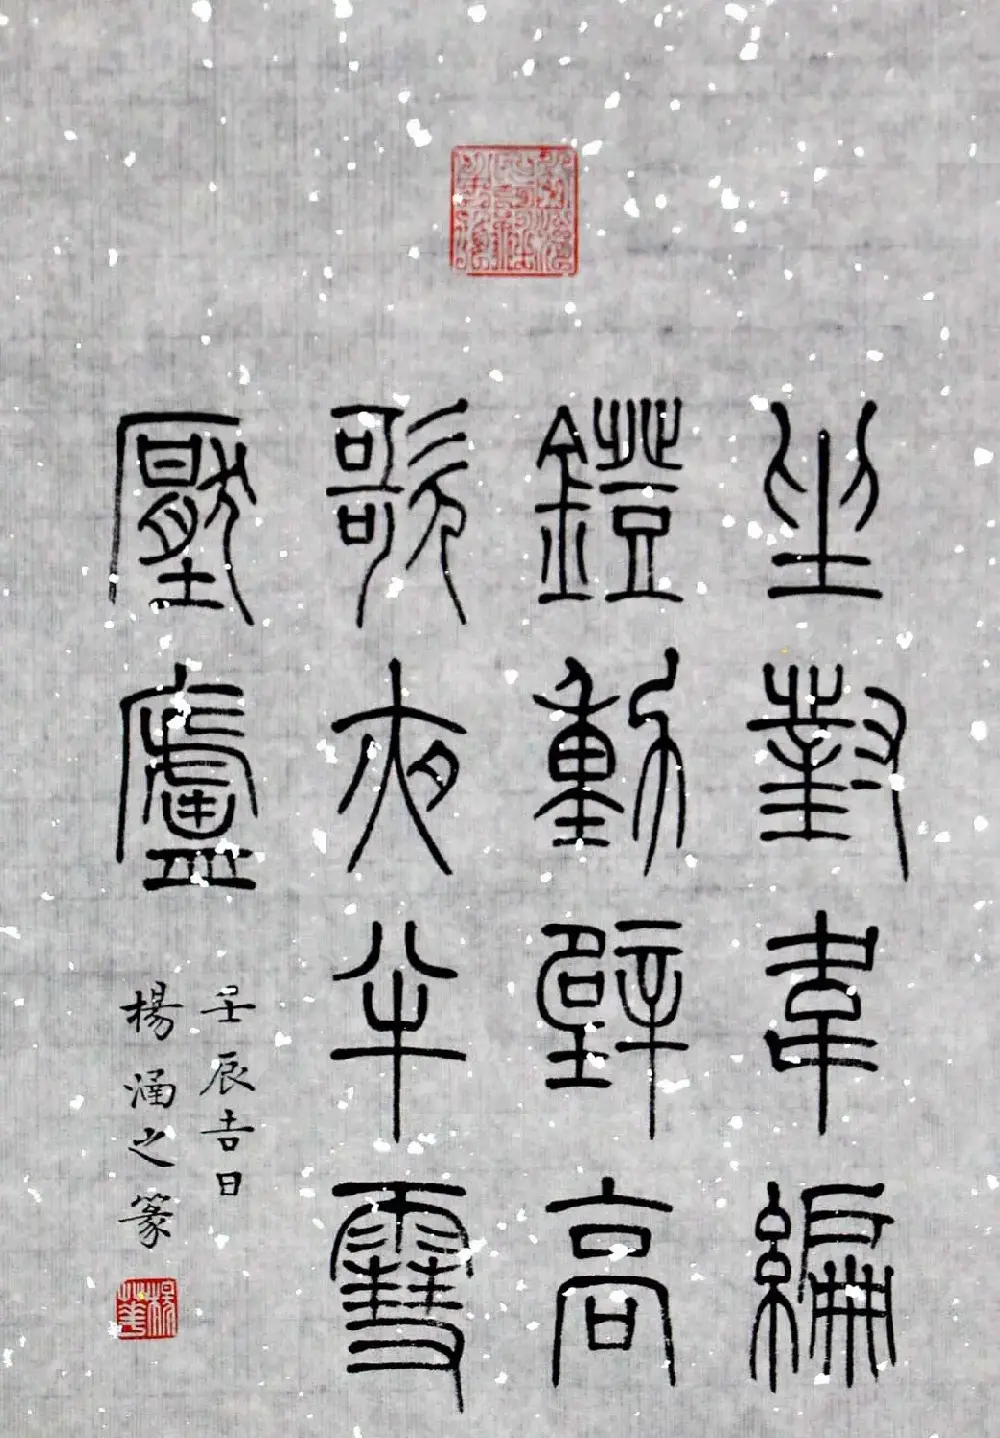 坐對韋編
鐙動壁高
歌夜半雪
壓廬
壬辰吉日
楊涵之篆